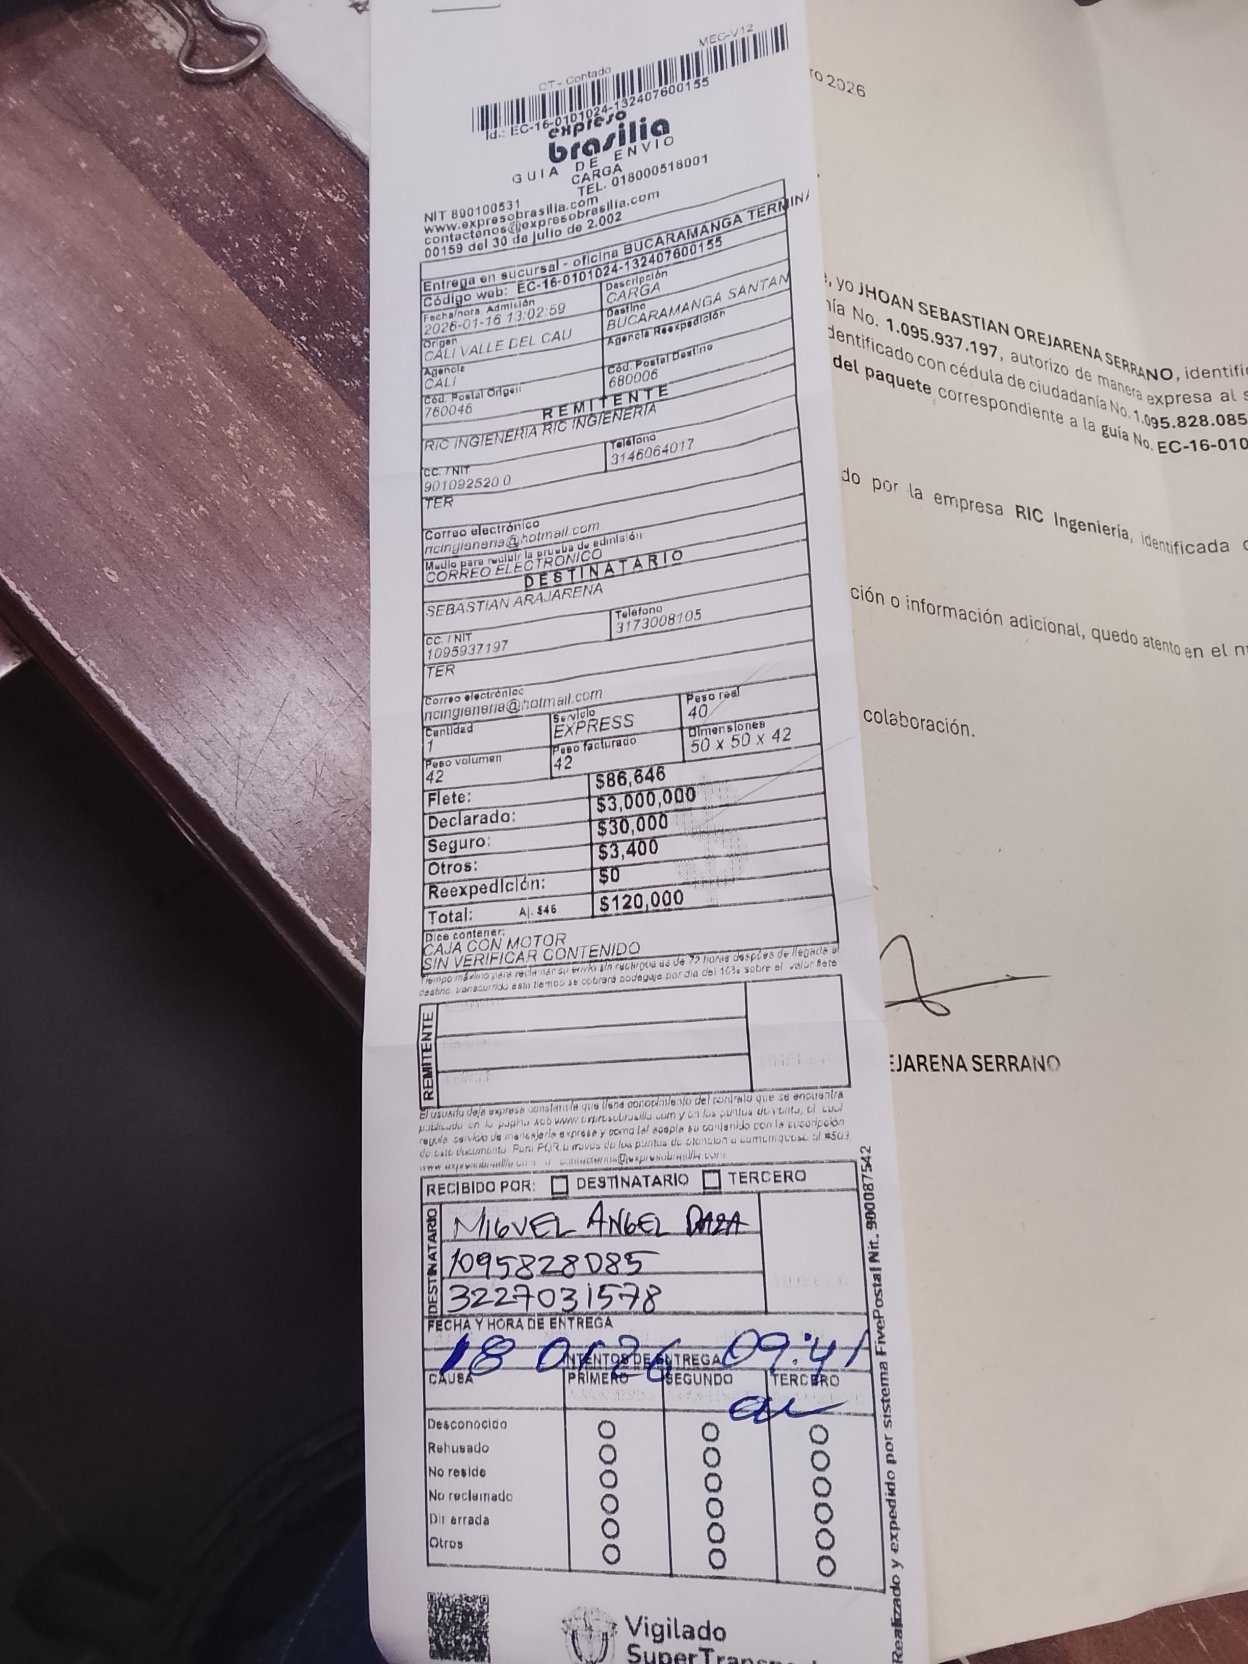 MEC-V12
CT - Contado
Id.: EC-16-0101024-132407600155
expreso
brasilia
GUIA DE ENVIO
CARGA
TEL. 018000518001
NIT 890100531
www.expresobrasilia.com
contactenos@expresobrasilia.com
00159 del 30 de julio de 2.002
Entrega en sucursal - oficina BUCARAMANGA TERMINA
Código web: EC-16-0101024-132407600155
Fecha/hora Admisión
2026-01-16 13:02:59
Descripción
CARGA
Origen
CALI VALLE DEL CAU
Destino
BUCARAMANGA SANTAN
Agencia
CALI
Agencia Reexpedición
Cód. Postal Origen
760046
Cód. Postal Destino
680006
REMITENTE
RIC INGIENERIA RIC INGIENERIA
CC. / NIT
901092520 0
Teléfono
3146064017
TER
Correo electrónico
ricingieneria@hotmail.com
Medio para recibir la prueba de admisión
CORREO ELECTRONICO
DESTINATARIO
SEBASTIAN ARAJARENA
CC. / NIT
1095937197
Teléfono
3173008105
TER
Correo electrónico
ricingieneria@hotmail.com
Cantidad
1
Servicio
EXPRESS
Peso real
40
Peso volumen
42
Peso facturado
42
Dimensiones
50 x 50 x 42
Flete: $86,646
Declarado: $3,000,000
Seguro: $30,000
Otros: $3,400
Reexpedición: $0
Total: Aj. $46 $120,000
Dice contener:
CAJA CON MOTOR
SIN VERIFICAR CONTENIDO
Tiempo máximo para reclamar su envío sin recargos es de 72 horas después de llegada al
destino, transcurrido este tiempo se cobrará bodegaje por día del 10% sobre el valor flete
REMITENTE
El usuario deja expresa constancia que tiene conocimiento del contrato que se encuentra
publicado en la pagina web www.expresobrasilia.com y en los puntos de venta, el cual
regula servicio de mensajería expresa y como tal acepta su contenido con la suscripción
de este documento. Para PQR a traves de los puntos de atención
RECIBIDO POR: DESTINATARIO TERCERO
DESTINATARIO
MIGUEL ANGEL DAZA
1095828085
3227031578
FECHA Y HORA DE ENTREGA
18 01 26 09:41
INTENTOS DE ENTREGA
CAUSA PRIMERO SEGUNDO TERCERO
Desconocido
Rehusado
No reside
No reclamado
Dir errada
Otros
Realizado y expedido por sistema FivePostal Nit. 900087542
Vigilado
SuperTrans
ro 2026
, yo JHOAN SEBASTIAN OREJARENA SERRANO, identific
ía No. 1.095.937.197, autorizo de manera expresa al s
dentificado con cédula de ciudadanía No. 1.095.828.085
del paquete correspondiente a la guía No. EC-16-010
do por la empresa RIC Ingeniería, identificada c
ción o información adicional, quedo atento en el n
colaboración.
EJARENA SERRANO